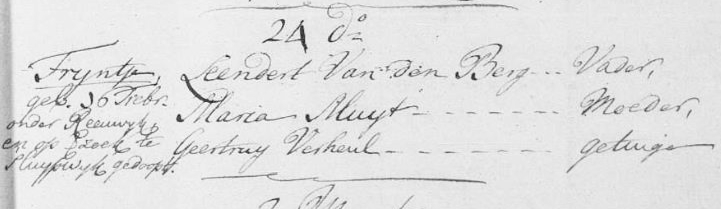 24 do
Tryntje, Leendert Van den Berg... Vader,
geb. 16 Febr. Maria Kluyt - - - - - - Moeder,
onder Reeuwyk, Geertruy Verheul - - - - - - getuige
en op zoek te
Sluypwyk gedoopt.